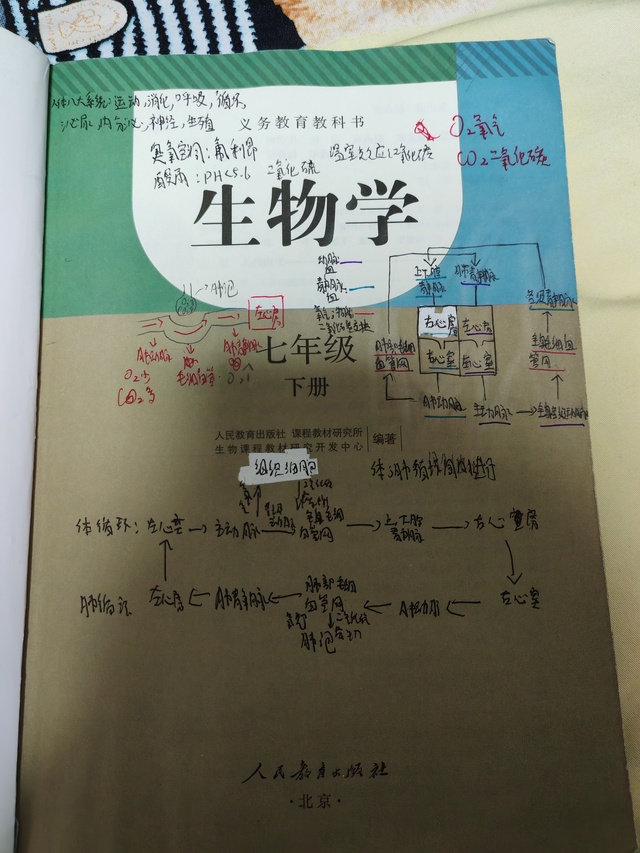 人体八大系统:运动,消化,呼吸,循环
泌尿,内分泌,神经,生殖
义务教育教科书
臭氧空洞:氟利昂
温室效应:二氧化碳
酸雨:PH<5.6 二氧化硫
O₂氧气
CO₂二氧化碳
生物学
肺泡
左心房
肺动脉
O₂少
CO₂多
毛细血管
肺静脉
七年级
下册
动脉血
静脉血
上下腔静脉
肺静脉
各级静脉
右心房
左心房
右心室
左心室
肺部毛细血管网
肺动脉
主动脉
人民教育出版社 课程教材研究所
生物课程教材研究开发中心
编著
组织细胞
体循环:左心室→主动脉
毛细血管网→上下腔静脉→右心房
肺循环 左心房←肺静脉←肺部毛细血管网←肺动脉←
左心室
肺泡
人民教育出版社
·北京·